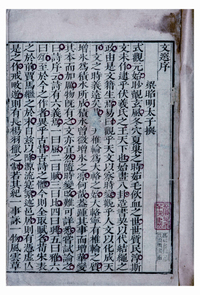 文選序
梁昭明太子撰
式觀元始眇覿玄風冬穴夏巢之時茹毛飲血之世世質民淳斯
文未作逮乎伏羲氏之王天下也始畫八卦造書契以代結繩之
政由是文籍生焉易曰觀乎天文以察時變觀乎人文以化成天
下文之時義遠矣哉若夫椎輪為大輅之始大輅寧有椎輪之質
增冰為積水所成積水曾微增冰之凜何哉蓋踵其事而增華變
其本而加厲物既有之文亦宜然隨時變改難可詳悉嘗試論之
曰詩序云詩有六義焉一曰風二曰賦三曰比四曰興五曰雅六
曰頌至於今之作者異乎古昔古詩之體今則全取賦名荀宋表
之於前賈馬繼之於末自茲以降源流實繁述邑居則有憑虛亡
是之作戒畋遊則有長楊羽獵之制若其紀一事詠一物風雲草